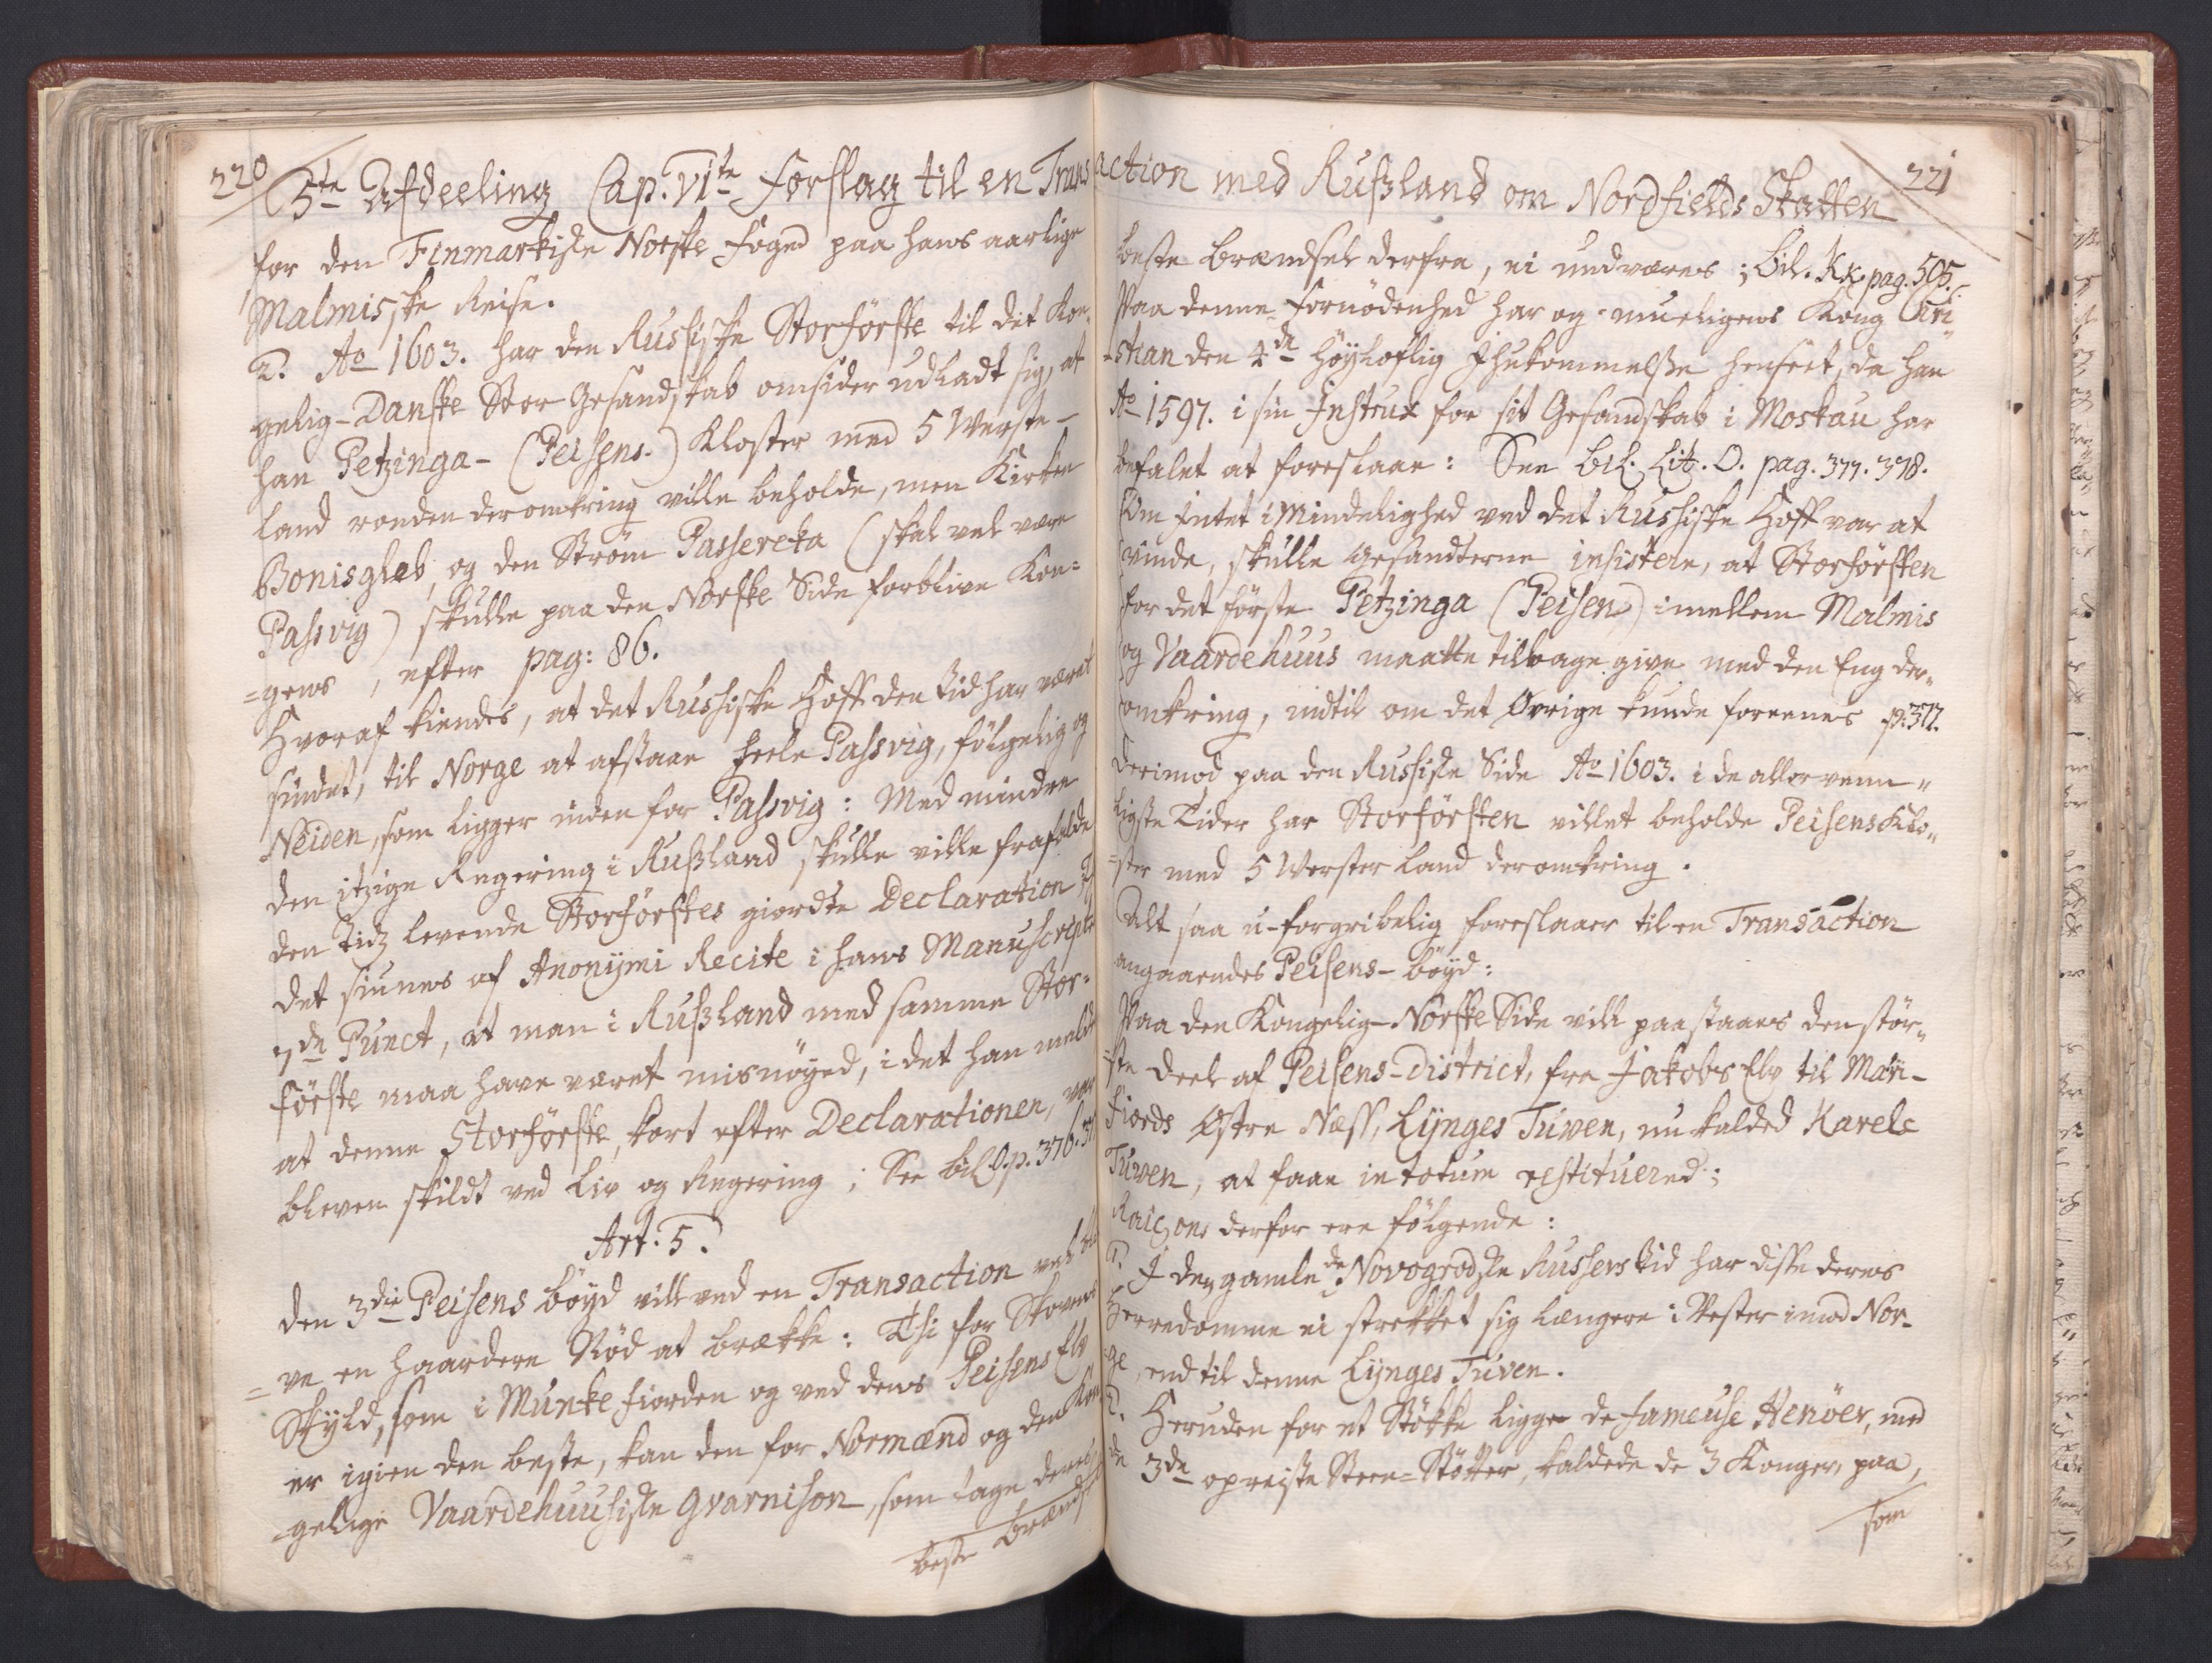 220
5te Afdeeling Cap. VIte Forslag til en Trans
for den Finmarkiske Norske Foged paa hans aarlige
Malmiske Reise.
2. Ao 1603. har den Russiske Storförste til det Kon-
gelig-Danske Stor Gesandskab omsider udladt sig, at
han Petzinga- (Peisens-) Kloster med 5 Werste-
land runden deromkring ville beholde, men Kirken
Bonisgleb, og den Ström Passereka (skal vel være
Passvig) skulle paa den Norske Side forblive Kon=
=gens, efter pag: 86.
Hvoraf kiendes, at det Russiske Hoff den tid har været
sindet, til Norge at afstaae heele Passvig, fölgelig og
Neiden, som ligger inden for Passvig: Med mindre
den itzige Regering i Rußland skulle ville frafalde
den Tidz levende Storförstes giordte Declaration
det siunes af Anonymi Recite i hans Manuscripts
7de Punct, at man i Rußland med samme Stor=
förste maa have været misnöyed, i det han melder
at denne Storförste, kort efter Declarationen, var
bleven skildt ved Liv og Regering; See Bil. O. p. 376.
Art. 5.
Den 3die Peisens böyd vill ved en Transaction
=ve en haardere Nöd at brække: Thi for Skovens
Skyld, som i Munkefiorden og ved dens Peisens Elv
er igien den beste, kan den for Normænd og den Kon
=gelige Vaardehuusiske Gvarnison, som tage deres
beste Brændsel
action med Rußland om Nordfields Skatten
221
beste Brændsel derfra, ei undværes; Bil. KK. pag. 505.
Paa denne Fornödenhed har og mueligens Kong Chri
=stian den 4de Höyloflig Ihukommelse henseet, da han
Ao 1597. i sin Instrux for sit Gesandskab i Moskau har
befalet at foreslaae: See Bil. Lit. O. pag. 377. 378.
Om Intet i Mindelighed ved det Russiske Hoff var at
vinde, skulle Gesandterne insistere, at Storförsten
for det förste Petzinga (Peisen) imellem Malmis
og Vaardehuus maatte tilbage give med den Eng der-
omkring, indtil om det Øvrige kunde foreenes p. 377.
Derimod paa den Russiske Side Ao 1603. i de allervenn-
ligste Tider har Storförsten villet beholde Peisens Klo-
=ster med 5 Werster Land deromkring.
Alt saa u-forgribelig foreslaaer til en Transaction
angaaendes Peisens-böyd:
Paa den Kongelig-Norske Side vill paastaaes den stör-
=ste Deel af Peisens-District, fra Jakobs Elv til Mari-
fiords Østre Næss, Lynges Tuven, nu kalded Karele
Tuven, at faae in totum restituered;
Raisons derfor ere fölgende:
1. I den gamle de Novogrodske Russers tid har disse deres
Herredomme ei strekket sig længere i Vester imod Nor-
ge, end til denne Lynges Tuven.
2. Heruden for et Stökke ligger de fameuse Henöer, med
de 3de opreiste Steen=Stötter, kaldede de 3 Konger, paa,
som